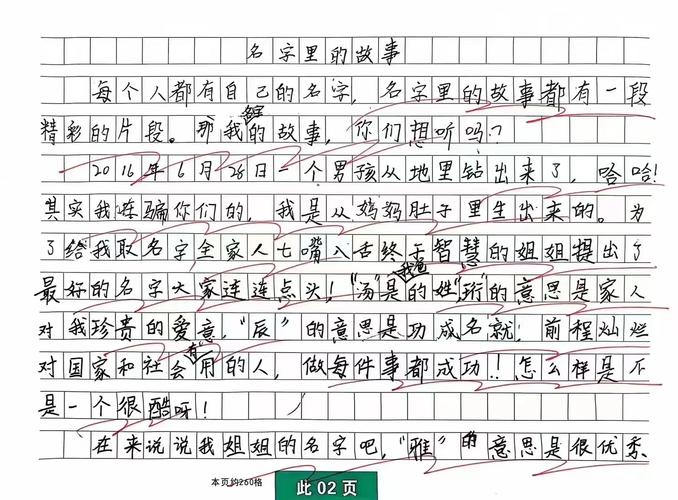 名字里的故事
每个人都有自己的名字，名字里的故事都有一段
精彩的片段。那我名字的故事，你们想听吗？
2016年6月28日一个男孩从地里钻出来了，哈哈！
其实我在骗你们的，我是从妈妈肚子里生出来的。为
了给我取名字全家人七嘴八舌终于智慧的姐姐提出了
最好的名字大家连连点头！"汤"是我爸的姓"珩"的意思是家人
对我珍贵的爱意，"辰"的意思是功成名就！前程灿烂
对国家和社会有用的人，做每件事都成功！！怎么样是不
是一个很酷呀！
在来说说我姐姐的名字吧，"雅"的意思是很优秀
本页约260格
此 02 页